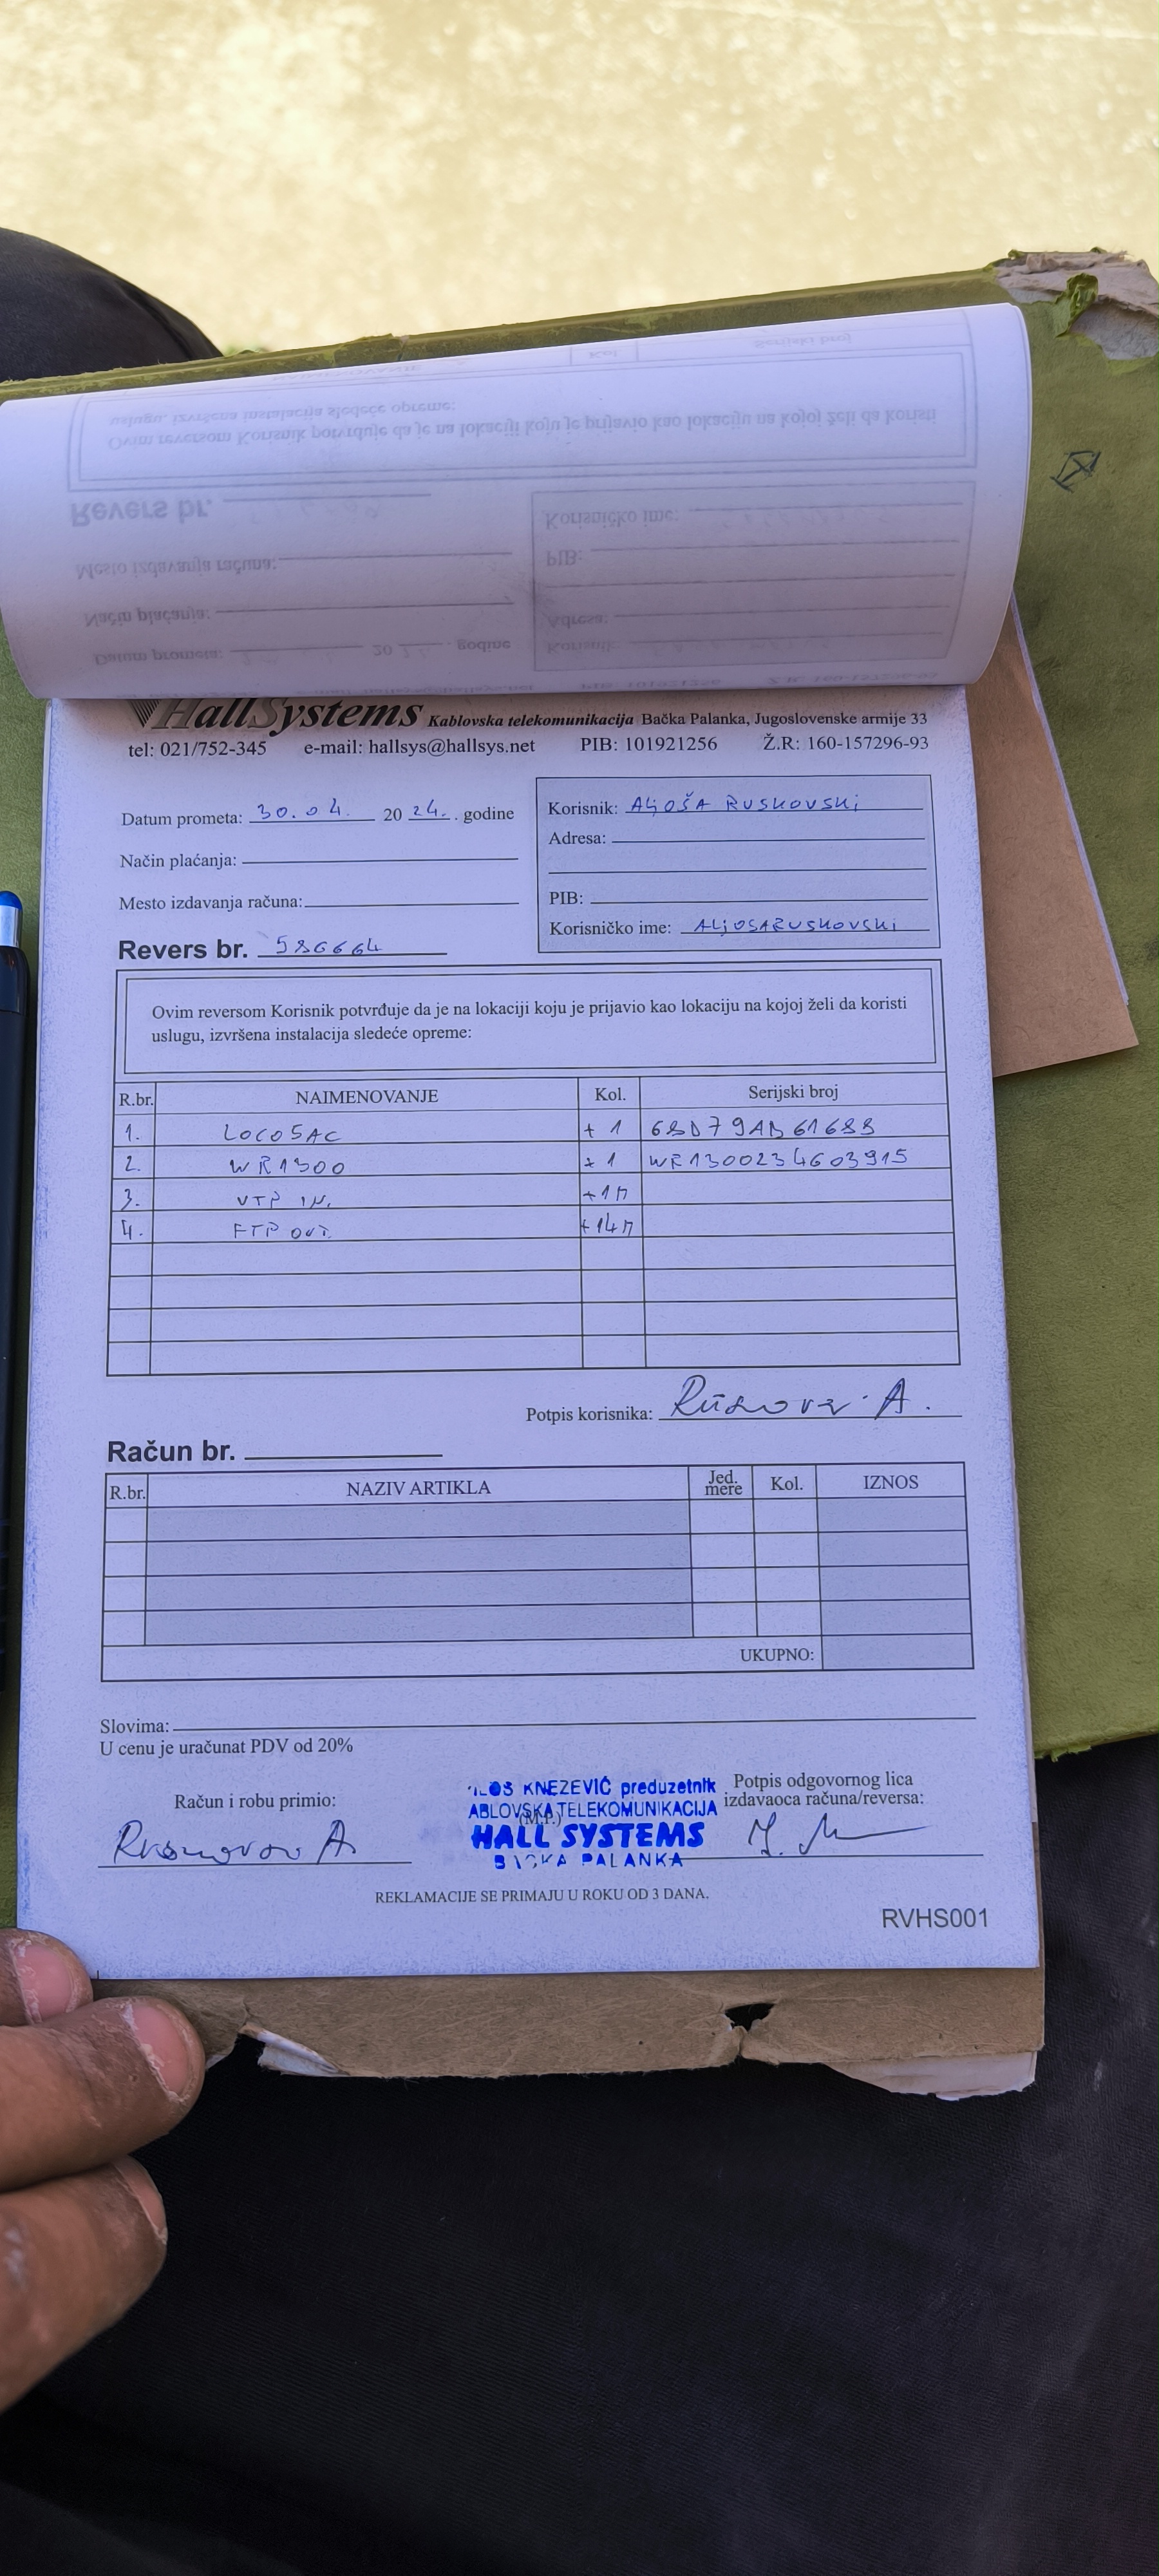 HallSystems Kablovska telekomunikacija Bačka Palanka, Jugoslovenske armije 33
tel: 021/752-345 e-mail: hallsys@hallsys.net PIB: 101921256 Ž.R: 160-157296-93
Datum prometa: 30.04. 2024. godine
Način plaćanja:
Mesto izdavanja računa:
Revers br. 586664
Korisnik: ALJOŠA RUSKOVSKI
Adresa:
PIB:
Korisničko ime: ALJOSARUSKOVSKI
Ovim reversom Korisnik potvrđuje da je na lokaciji koju je prijavio kao lokaciju na kojoj želi da koristi
uslugu, izvršena instalacija sledeće opreme:
R.br. NAIMENOVANJE Kol. Serijski broj
1. LOCO5AC + 1 68D79AB61688
2. WR1300 + 1 WR1300234603915
3. UTP IN. +1M
4. FTP OUT. +14M
Potpis korisnika: A.
Račun br.
R.br. NAZIV ARTIKLA Jed. mere Kol. IZNOS
UKUPNO:
Slovima:
U cenu je uračunat PDV od 20%
Račun i robu primio:
KNEZEVIĆ preduzetnik
TELEKOMUNIKACIJA
(M.P.)
HALL SYSTEMS
PALANKA
Potpis odgovornog lica
izdavaoca računa/reversa:
REKLAMACIJE SE PRIMAJU U ROKU OD 3 DANA.
RVHS001